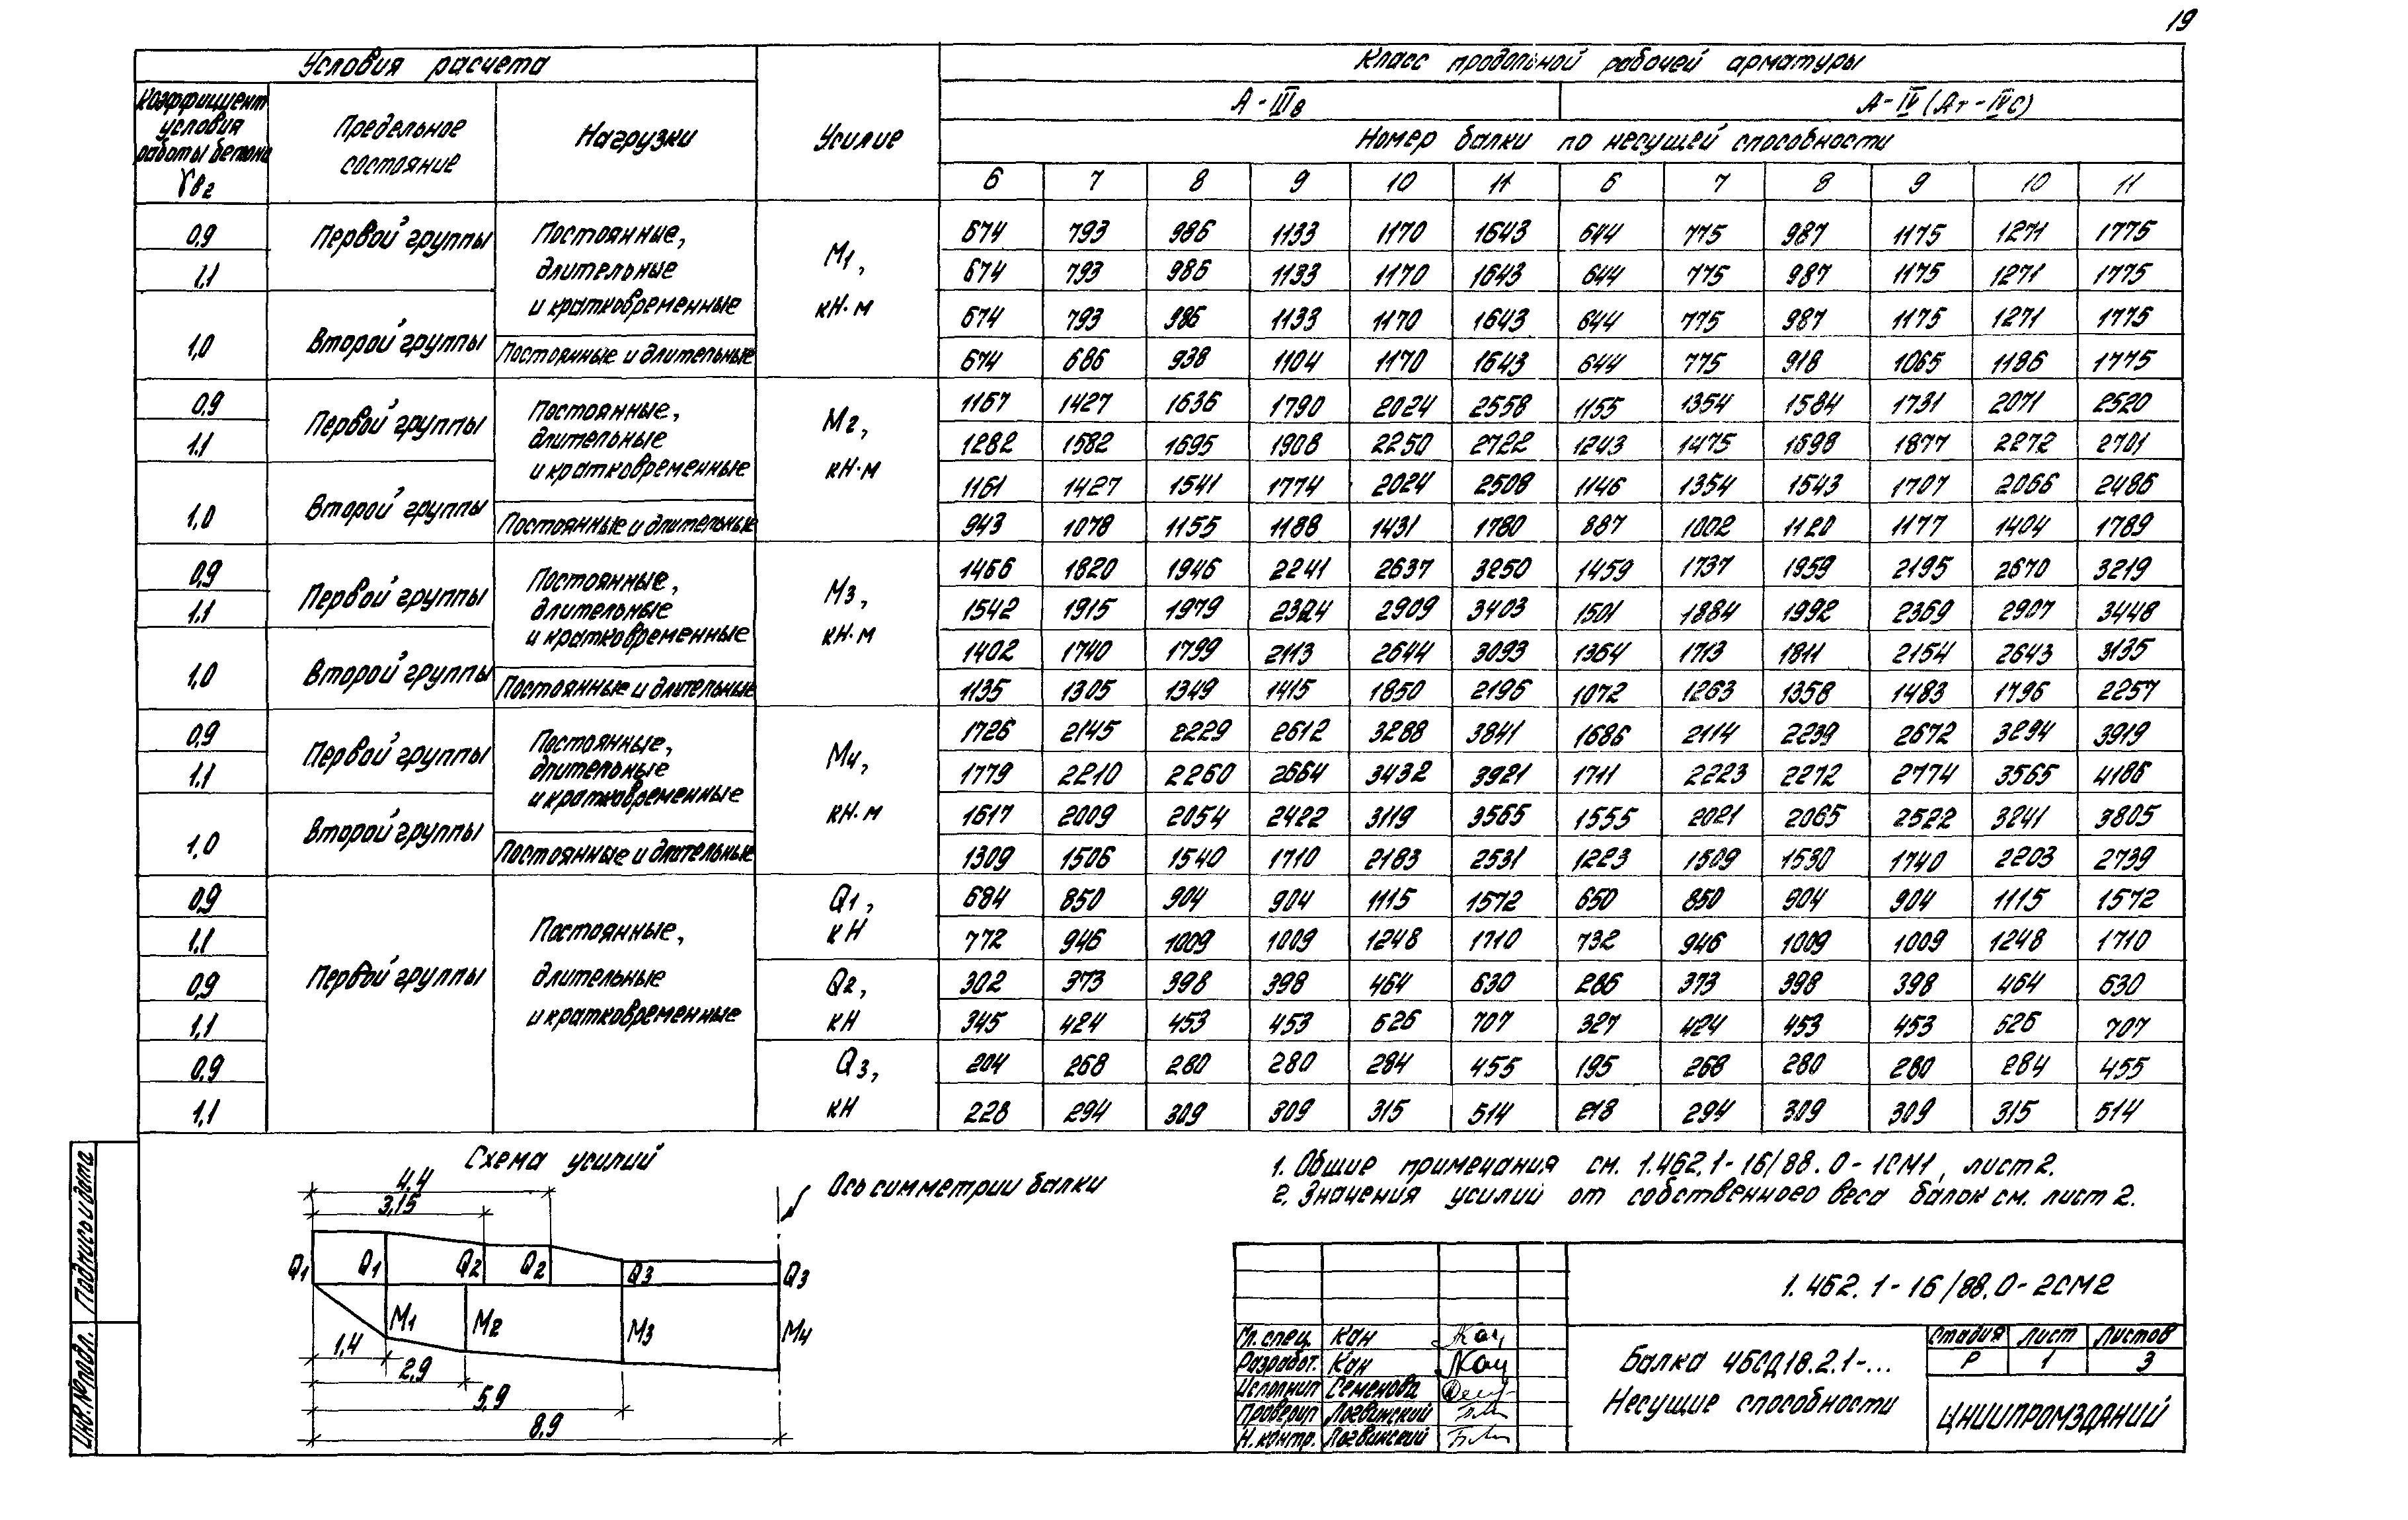 19
Условия расчета
Класс продольной рабочей арматуры
Коэффициент условия работы бетона γв2
Предельное состояние
Нагрузки
Усилие
А-IIIв
А-IV (Ат-IVС)
Номер балки по несущей способности
6 7 8 9 10 11 6 7 8 9 10 11
0,9 Первой группы Постоянные, длительные и кратковременные М1, кН·м 674 793 986 1133 1170 1643 644 775 987 1175 1271 1775
1,1 674 793 986 1133 1170 1643 644 775 987 1175 1271 1775
1,0 Второй группы 674 793 986 1133 1170 1643 644 775 987 1175 1271 1775
Постоянные и длительные 674 686 938 1104 1170 1643 644 775 918 1065 1186 1775
0,9 Первой группы Постоянные, длительные и кратковременные М2, кН·м 1167 1427 1636 1790 2024 2558 1155 1354 1584 1731 2071 2520
1,1 1282 1582 1695 1908 2250 2722 1243 1475 1698 1877 2272 2701
1,0 Второй группы 1161 1427 1541 1774 2024 2508 1146 1354 1543 1707 2066 2486
Постоянные и длительные 943 1078 1155 1188 1431 1780 887 1002 1120 1177 1404 1789
0,9 Первой группы Постоянные, длительные и кратковременные М3, кН·м 1466 1820 1946 2241 2637 3250 1459 1737 1959 2195 2670 3219
1,1 1542 1915 1979 2324 2909 3403 1501 1884 1992 2369 2907 3448
1,0 Второй группы 1402 1740 1799 2113 2644 3093 1364 1713 1811 2154 2643 3135
Постоянные и длительные 1135 1305 1349 1415 1850 2196 1072 1263 1358 1483 1796 2257
0,9 Первой группы Постоянные, длительные и кратковременные М4, кН·м 1726 2145 2229 2612 3288 3841 1686 2114 2239 2672 3294 3919
1,1 1779 2210 2260 2664 3432 3921 1711 2223 2272 2774 3565 4186
1,0 Второй группы 1617 2009 2054 2422 3119 3565 1555 2021 2065 2522 3241 3805
Постоянные и длительные 1309 1506 1540 1710 2183 2531 1223 1509 1530 1740 2203 2739
0,9 Первой группы Постоянные, длительные и кратковременные Q1, кН 684 850 904 904 1115 1572 650 850 904 904 1115 1572
1,1 772 946 1009 1009 1248 1710 732 946 1009 1009 1248 1710
0,9 Q2, кН 302 373 398 398 464 630 286 373 398 398 464 630
1,1 345 424 453 453 526 707 327 424 453 453 526 707
0,9 Q3, кН 204 268 280 280 284 455 195 268 280 280 284 455
1,1 228 294 309 309 315 514 218 294 309 309 315 514
Схема усилий
4,4
3,15
Ось симметрии балки
Q1 Q1 Q2 Q2 Q3 Q3
М1 М2 М3 М4
1,4
2,9
5,9
8,9
1. Общие примечания см. 1.462.1-16/88.0-1СМ1, лист 2.
2. Значения усилий от собственного веса балок см. лист 2.
1.462.1-16/88.0-2СМ2
Гл. спец. Кан
Разработ. Кан
Исполнил Семенова
Проверил Логвинский
Н. контр. Логвинский
Балка 4БСД18.2.1-...
Несущие способности
Стадия Лист Листов
Р 1 3
ЦНИИПРОМЗДАНИЙ
Инв. № подл. Подпись и дата